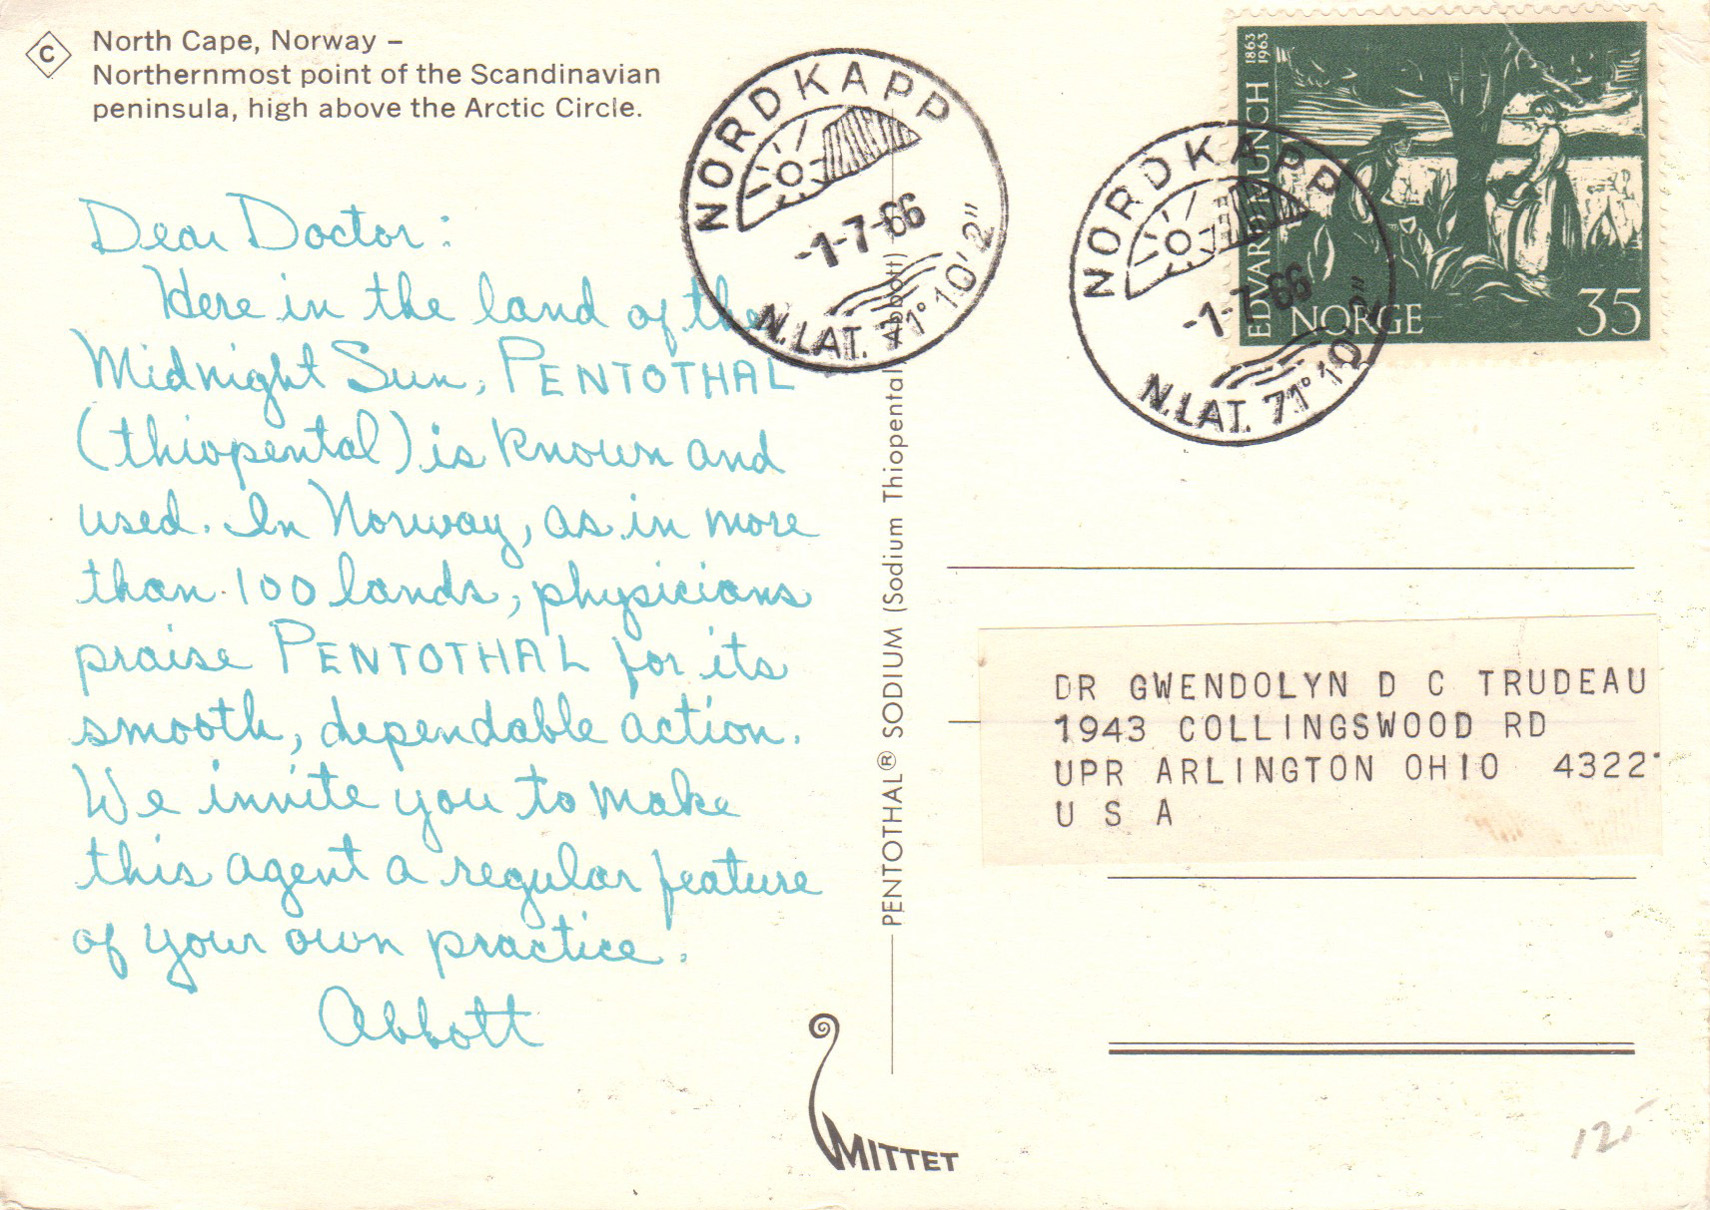 C
North Cape, Norway –
Northernmost point of the Scandinavian
peninsula, high above the Arctic Circle.
Dear Doctor:
Here in the land of the
Midnight Sun, PENTOTHAL
(thiopental) is known and
used. In Norway, as in more
than 100 lands, physicians
praise PENTOTHAL for its
smooth, dependable action.
We invite you to make
this agent a regular feature
of your own practice.
Abbott
NORDKAPP
-1-7-66
N.LAT. 71°10'2"
PENTOTHAL® SODIUM (Sodium Thiopental, Abbott)
MITTET
NORDKAPP
-1-7-66
N.LAT. 71°10'2"
1863
1963
EDVARD MUNCH
NORGE
35
DR GWENDOLYN D C TRUDEAU
1943 COLLINGSWOOD RD
UPR ARLINGTON OHIO 4322
U S A